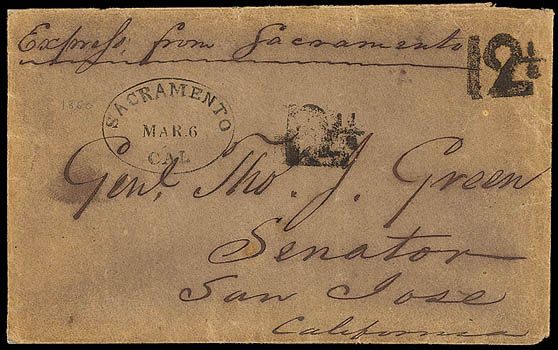 Express, from Sacramento
12½
SACRAMENTO
MAR. 6
CAL
12½
Genl. Tho. J. Green
Senator
San Jose
California